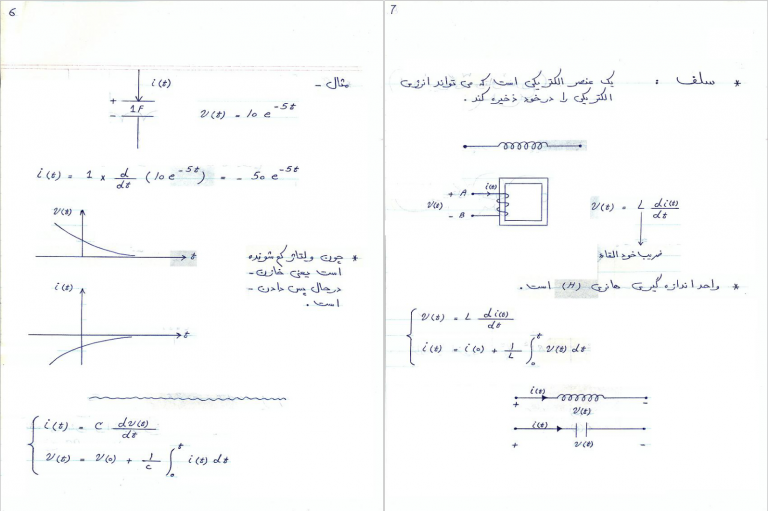 6
مثال -
i(t)
+
1F
-
v(t) = 10 e^-5t
i(t) = 1 × d/dt (10 e^-5t) = - 50 e^-5t
v(t)
t
* چون ولتاژ کم شونده
است یعنی خازن -
درحال پس دادن -
است .
i(t)
t
i(t) = C dv(t)/dt
v(t) = v(0) + 1/C ∫₀ᵗ i(t) dt
7
* سلف : یک عنصر الکتریکی است که می تواند انرژی
الکتریکی را درخود ذخیره کند .
+ A i(t)
v(t)
- B
v(t) = L di(t)/dt
ضریب خود القاء
* واحد اندازه گیری هانری (H) است .
v(t) = L di(t)/dt
i(t) = i(0) + 1/L ∫₀ᵗ v(t) dt
i(t)
+ -
v(t)
i(t)
+ -
v(t)